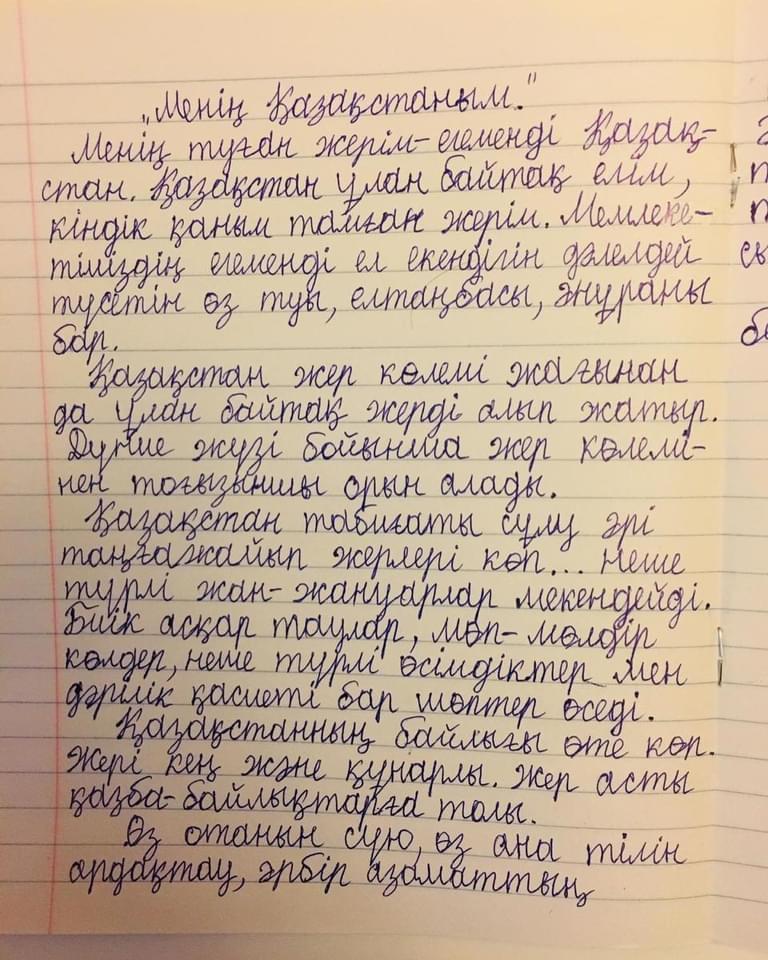 „Менің Қазақстаным."
Менің туған жерім-егеменді Қазақ-
стан. Қазақстан ұлан байтақ елім,
кіндік қаным тамған жерім. Мемлеке-
тіміздің егеменді ел екендігін дәлелдей
түсетін өз туы, елтаңбасы, әнұраны
бар.
Қазақстан жер көлемі жағынан
да ұлан байтақ жерді алып жатыр.
Дүние жүзі бойынша жер көлемі-
нен тоғызыншы орын алады.
Қазақстан табиғаты сұлу әрі
таңғажайып жерлері көп... Неше
түрлі жан-жануарлар мекендейді.
Биік асқар таулар, мөп-мөлдір
көлдер, неше түрлі өсімдіктер мен
дәрілік қасиеті бар шөптер өседі.
Қазақстанның байлығы өте көп.
Жері кең және құнарлы. Жер асты
қазба-байлықтарға толы.
Өз отанын сүю, өз ана тілін
ардақтау, әрбір азаматтың